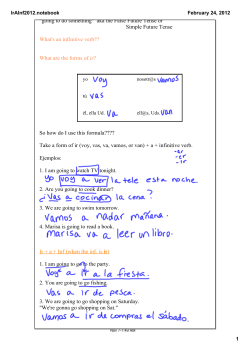 IrAInf2012.notebook
February 24, 2012
"going to do something" aka the Future Tense or
Simple Future Tense
What's an infinitive verb??
What are the forms of ir?
yo voy nosotr@s vamos
tú vas
él, ella Ud. va ell@s, Uds. van
So how do I use this formula????
Take a form of ir (voy, vas, va, vamos, or van) + a + infinitive verb
-ar
-er
-ir
Ejemplos:
1. I am going to watch TV tonight.
yo voy a ver la tele esta noche
2. Are you going to cook dinner?
¿Vas a cocinar la cena?
3. We are going to swim tomorrow.
Vamos a nadar mañana.
4. Marisa is going to read a book.
Marisa va a leer un libro.
Ir + a + Inf (when the inf. is ir)
1. I am going to go to the party.
Voy a ir a la fiesta.
2. You are going to go fishing.
Vas a ir de pesca.
3. We are going to go shopping on Saturday.
"We're gonna go shopping on Sat."
Vamos a ir de compras el sábado.
1